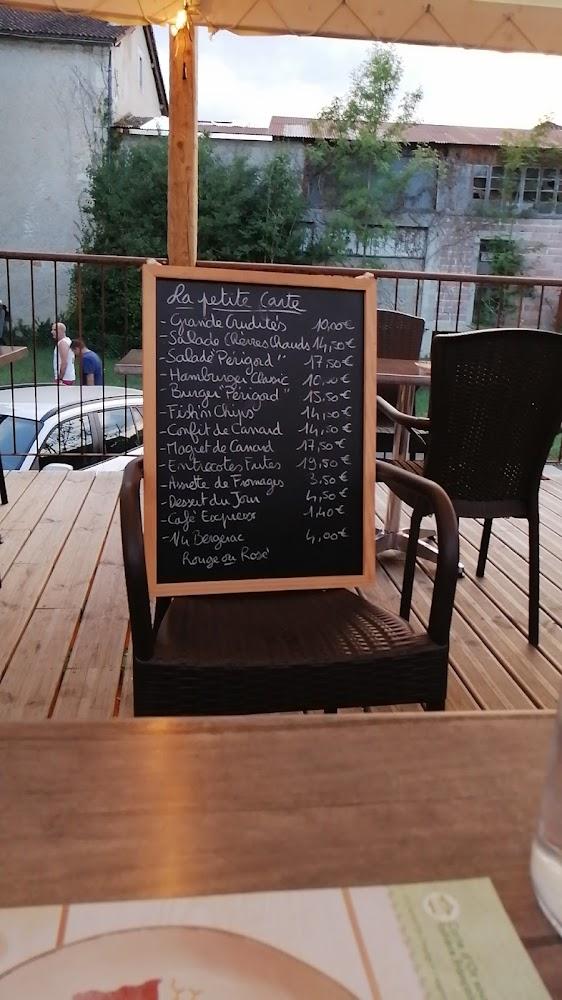 La petite Carte
- Grande Crudités 10,00€
- Salade Chèvres Chauds 14,50€
- Salade "Périgord" 17,50€
- Hamburger Classic 10,00€
- Burger "Périgord" 15,50€
- Fish'n Chips 14,00€
- Confit de Canard 14,50€
- Magret de Canard 17,50€
- Entrecotes Frites 19,50€
- Assiette de Fromages 3,50€
- Dessert du Jour 4,50€
- Café Express 1,40€
- 1/4 Bergerac 4,00€
Rouge ou Rosé